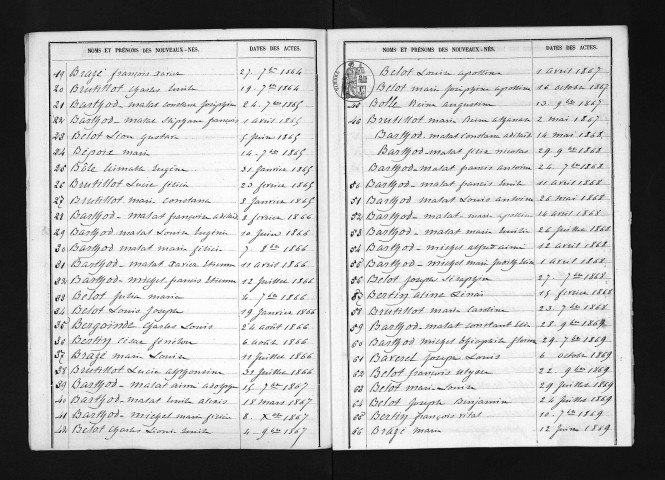 NOMS ET PRÉNOMS DES NOUVEAUX-NÉS. DATES DES ACTES.
19 Brazé françois xavier 27. 7bre 1864
20 Brutillot Charles Emile 19. 7bre 1864
21 Barthod malat constance joséphine 24. 7bre 1865
22 Barthod malat françois 1 avril 1865
23 Belot Léon gustave 5 juin 1865
24 marie 14. 7bre 1865
25 Bôle eugène 21 janvier 1865
26 Brutillot Lucie félicie 23 fevrier 1865
27 Brutillot marie constance 8 janvier 1865
28 Barthod malat françoise 8 fevrier 1866
29 Barthod malat Louise Eugénie 10 juin 1866
30 Barthod malat marie félicie 7 8bre 1866
31 Barthod malat xavier Etienne 11 avril 1866
32 Barthod mieget francis Etienne 12 juillet 1866
33 Belot Julia maria 4. 7bre 1866
34 Belot Louis Joseph 19 janvier 1866
35 Charles Louis 24 août 1866
36 Bertin césar 6 août 1866
37 Brazé marie Louise 11 juillet 1866
38 Brutillot Lucie alphonsine 31 juillet 1866
39 Barthod malat aimé 15. 7bre 1867
40 Barthod malat Emile alexis 18 mars 1867
41 Barthod miéget marie félicie 8. Xbre 1867
42 Belot Charles Léon Emile 4. 9bre 1867
NOMS ET PRÉNOMS DES NOUVEAUX-NÉS. DATES DES ACTES.
Belot Louise apolline 1 avril 1867
Belot marie joséphine apolline 16 octobre 1867
Bolle augustine 13. 9bre 1867
46 Brutillot marie 2 mai 1867
Barthod malat constance 14 mai 1868
Barthod malat félix nicolas 29 9bre 1868
Barthod malat francis antoine 24 7bre 1868
50 Barthod malat francis Emile 11 avril 1868
51 Barthod malat Louis antoine 26 mai 1868
52 Barthod malat marie apolline 14 avril 1868
53 Barthod malat marie Emilie 26 juillet 1868
54 Barthod miéget alfred aimé 12 avril 1868
55 Barthod miéget marie 1 avril 1868
56 Belot Joseph Séraphin 27. 7bre 1868
57 Bertin aline 15 fevrier 1868
58 Brutillot marie caroline 23 7bre 1868
59 Barthod malat constant 28. 9bre 1869
60 Barthod miéget 29. 7bre 1869
61 Baverel Joseph Louis 6 octobre 1869
62 Belot francois Ulysse 22. 9bre 1869
63 Belot marie Louise 29 juillet 1869
64 Belot Joseph Benjamin 24 juillet 1869
65 Bertin françois vital 10. 7bre 1869
66 Brazé marie 12 juin 1869